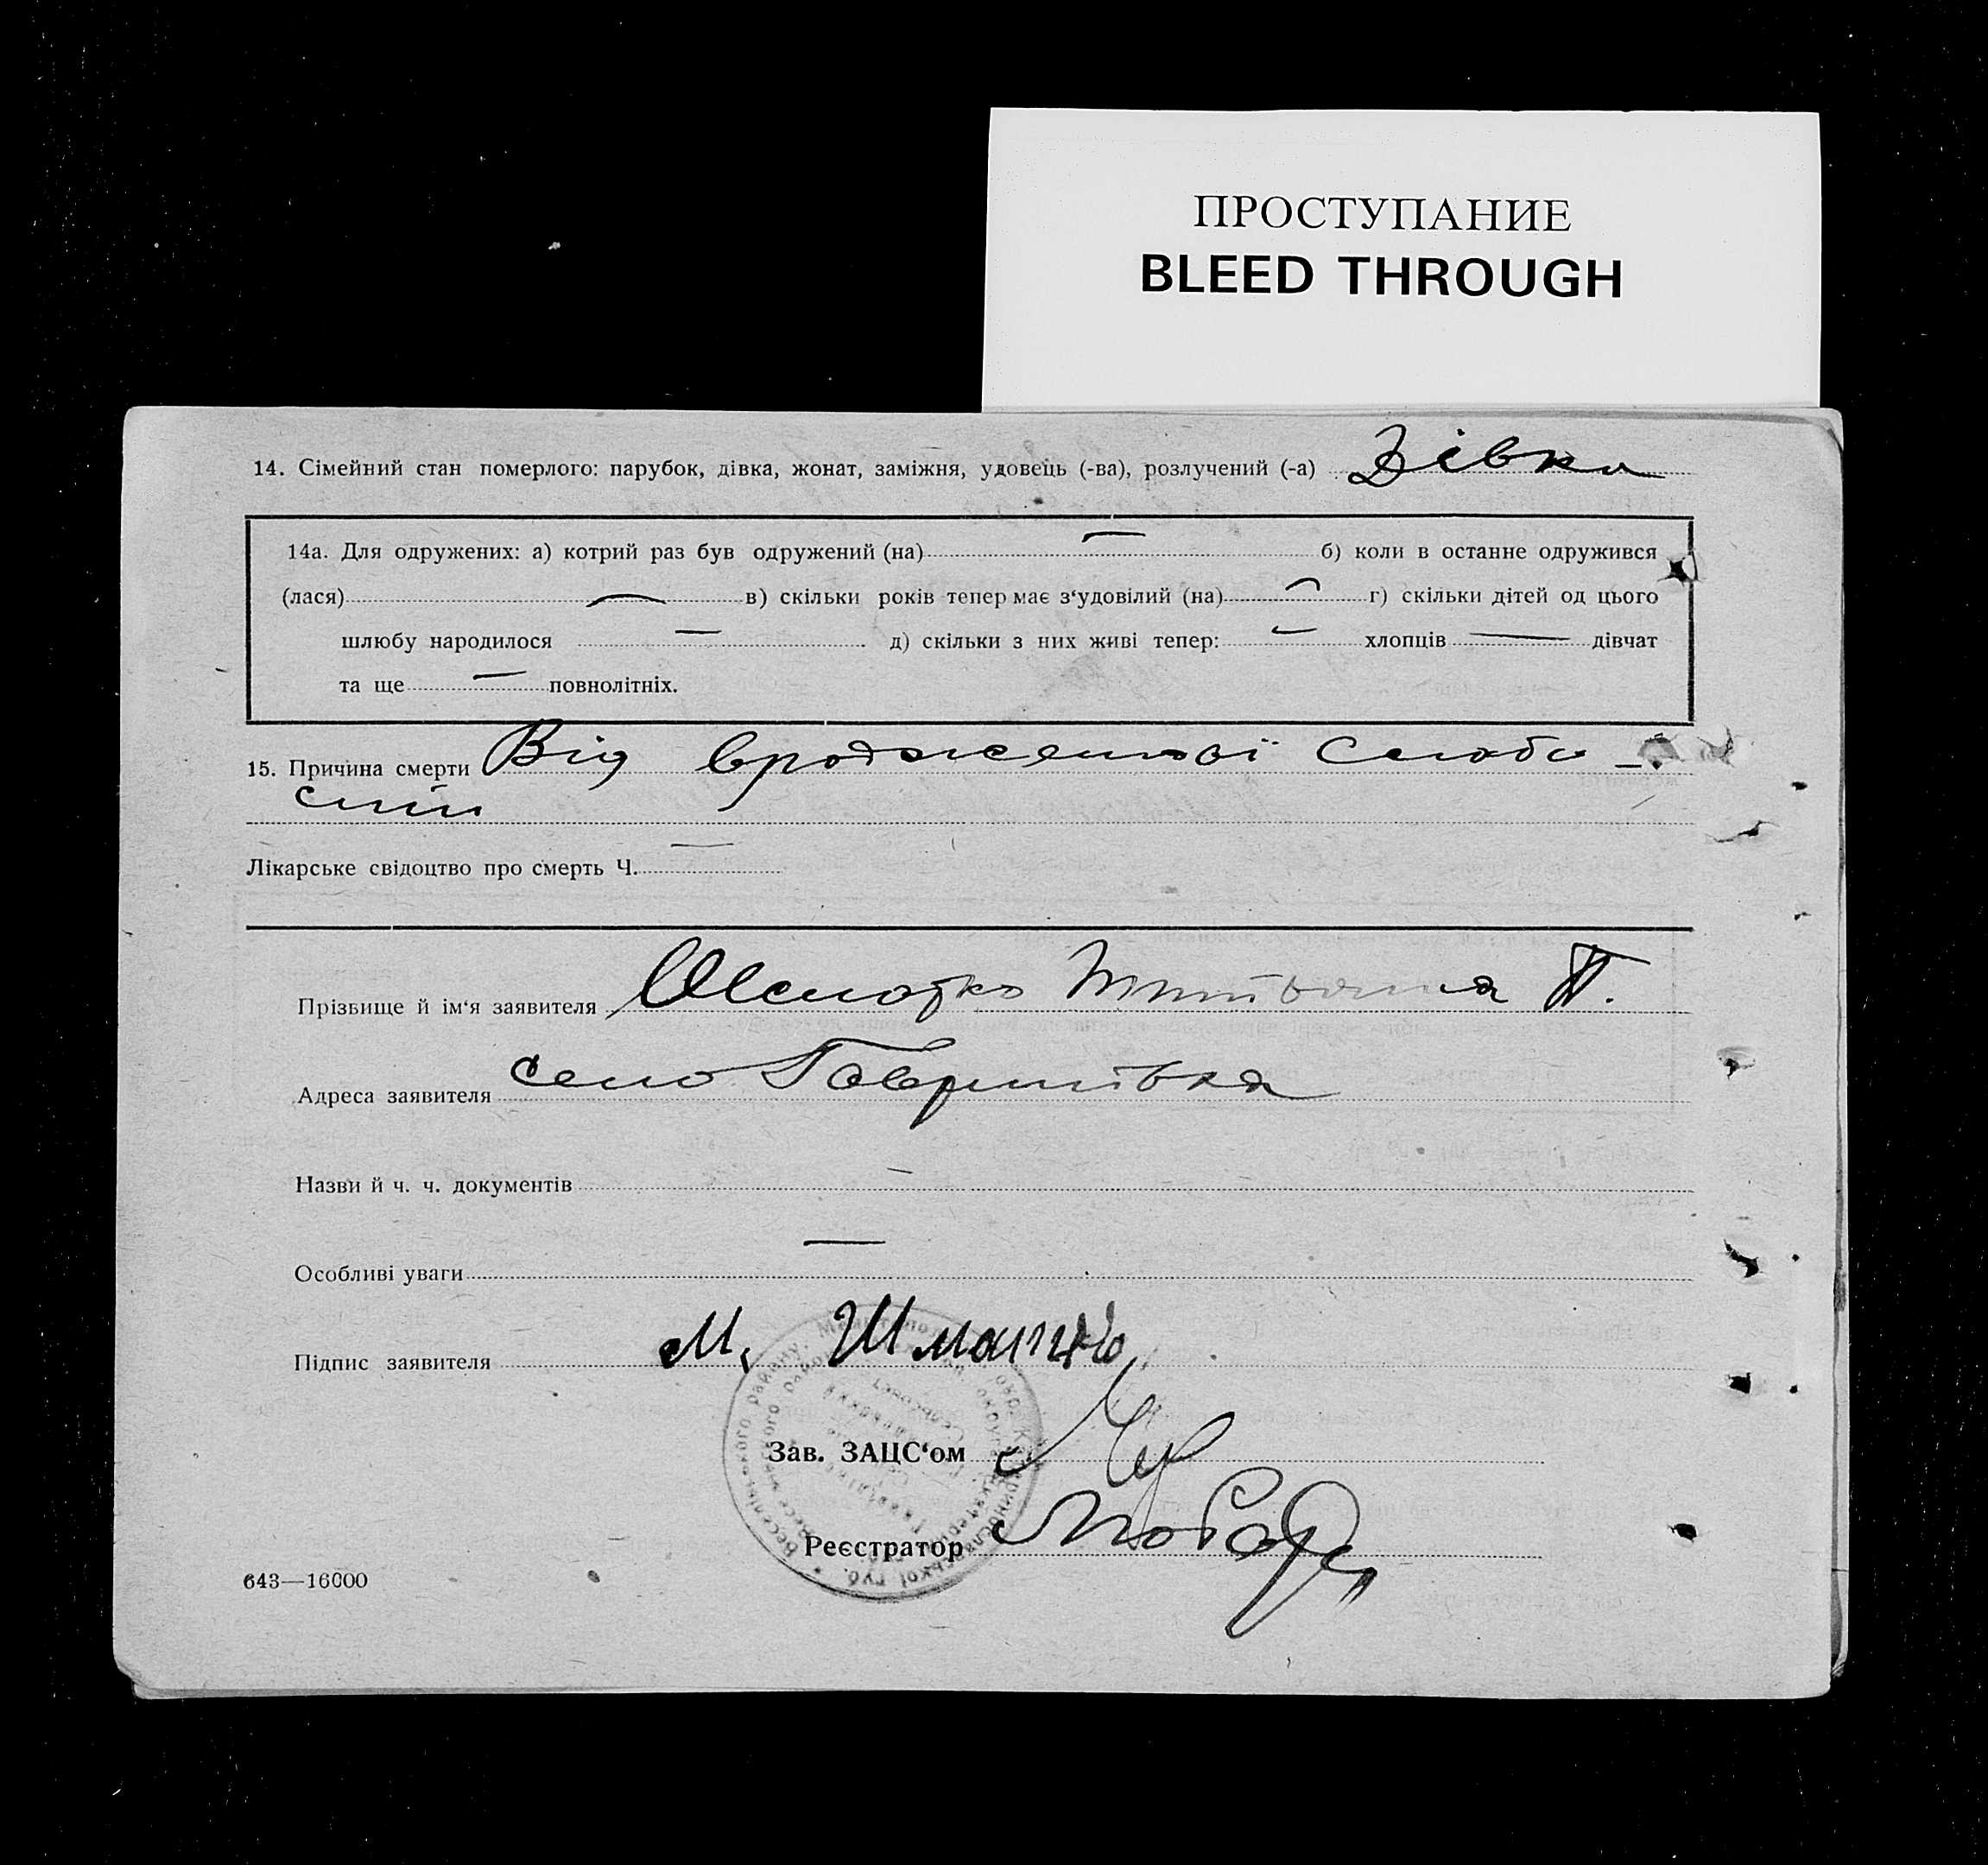 ПРОСТУПАНИЕ
BLEED THROUGH
14. Сімейний стан померлого: парубок, дівка, жонат, заміжня, удовець (-ва), розлучений (-а) Дівка
14а. Для одружених: а) котрий раз був одружений (на) — б) коли в останне одружився
(лася) — в) скільки років тепер має з‘удовілий (на) — г) скільки дітей од цього
шлюбу народилося — д) скільки з них живі тепер: — хлопців — дівчат
та ще — повнолітніх.
15. Причина смерти Від вродженої слабо-
Лікарське свідоцтво про смерть Ч. —
Прізвище й ім‘я заявителя П.
Адреса заявителя село Гаврилівка
Назви й ч. ч. документів —
Особливі уваги —
Підпис заявителя М.
Зав. ЗАЦС‘ом
Реєстратор
643—16000